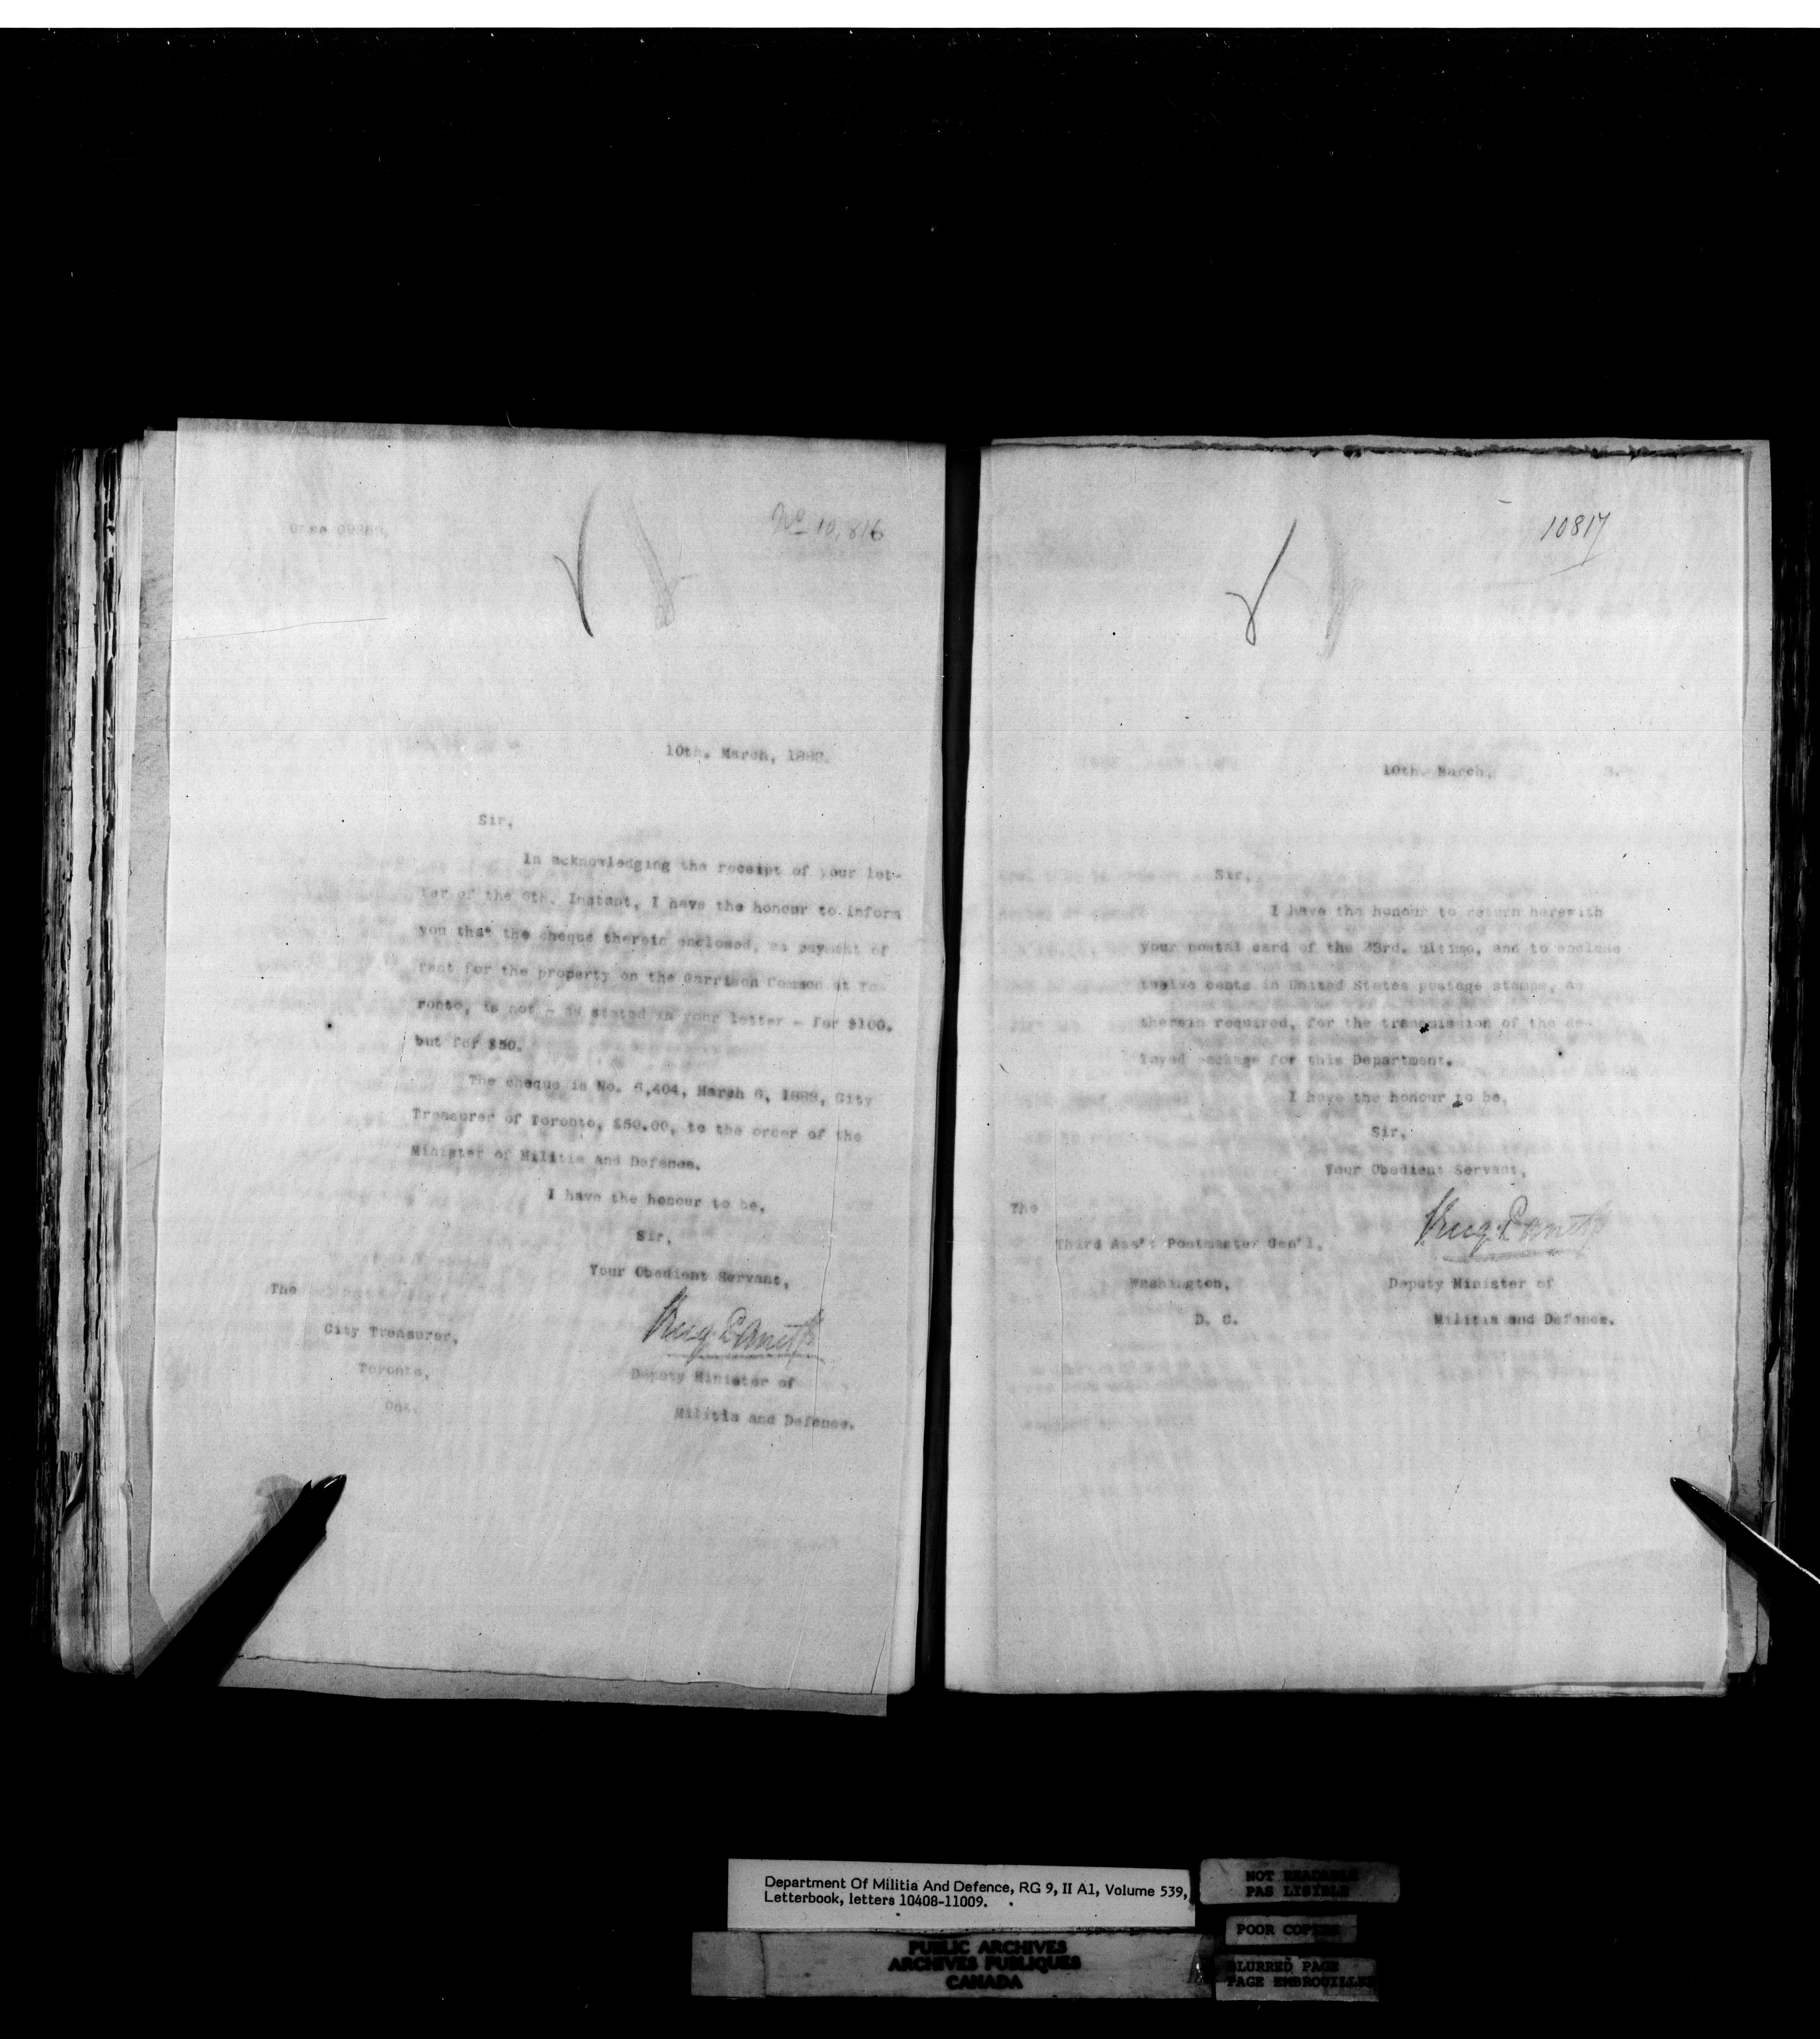 No 10,816
10th. March, 188
Sir,
In acknowledging the receipt of your let-
ter of the 6th. Instant, I have the honour to inform
you that the cheque therein enclosed, as payment of
rent for the property on the Garrison Common at To-
ronto, is not - as stated in your letter - for $100.
but for $50.
The cheque is No. 6,404, March 6, 1888, City
Treasurer of Toronto, $50.00, to the order of the
Minister of Militia and Defence.
I have the honour to be,
Sir,
Your Obedient Servant,
The
City Treasurer,
Toronto,
Ont.
Deputy Minister of
Militia and Defence.
10817
10th. March,
Sir,
I have the honour to return herewith
your postal card of the 23rd. ultimo, and to enclose
twelve cents in United States postage stamps, as
therein required, for the transmission of the de-
layed package for this Department.
I have the honour to be,
Sir,
Your Obedient Servant,
The
Third Ass't Postmaster Gen'l,
Washington,
D. C.
Deputy Minister of
Militia and Defence.
Department Of Militia And Defence, RG 9, II A1, Volume 539,
Letterbook, letters 10408-11009.
PUBLIC ARCHIVES
ARCHIVES PUBLIQUES
CANADA
NOT READABLE
PAS LISIBLE
POOR COPIES
BLURRED PAGE
PAGE EMBROUILLEE